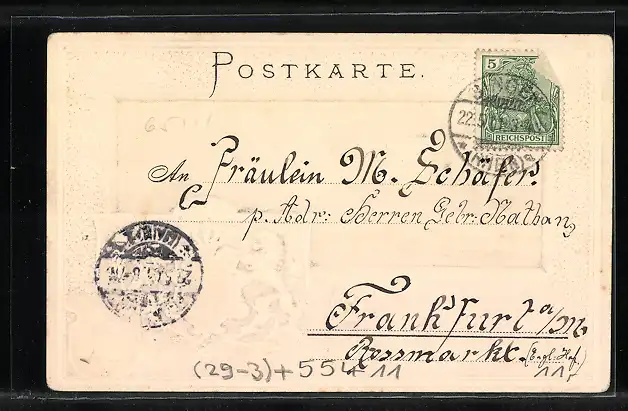 POSTKARTE.
5
REICHSPOST
An Fräulein M. Schäfer.
p. Adr. Herren Gebr. Nathan,
Frankfurt a/M.
Rossmarkt. (Engl. Hof.)
(29-3)+554 11
11,